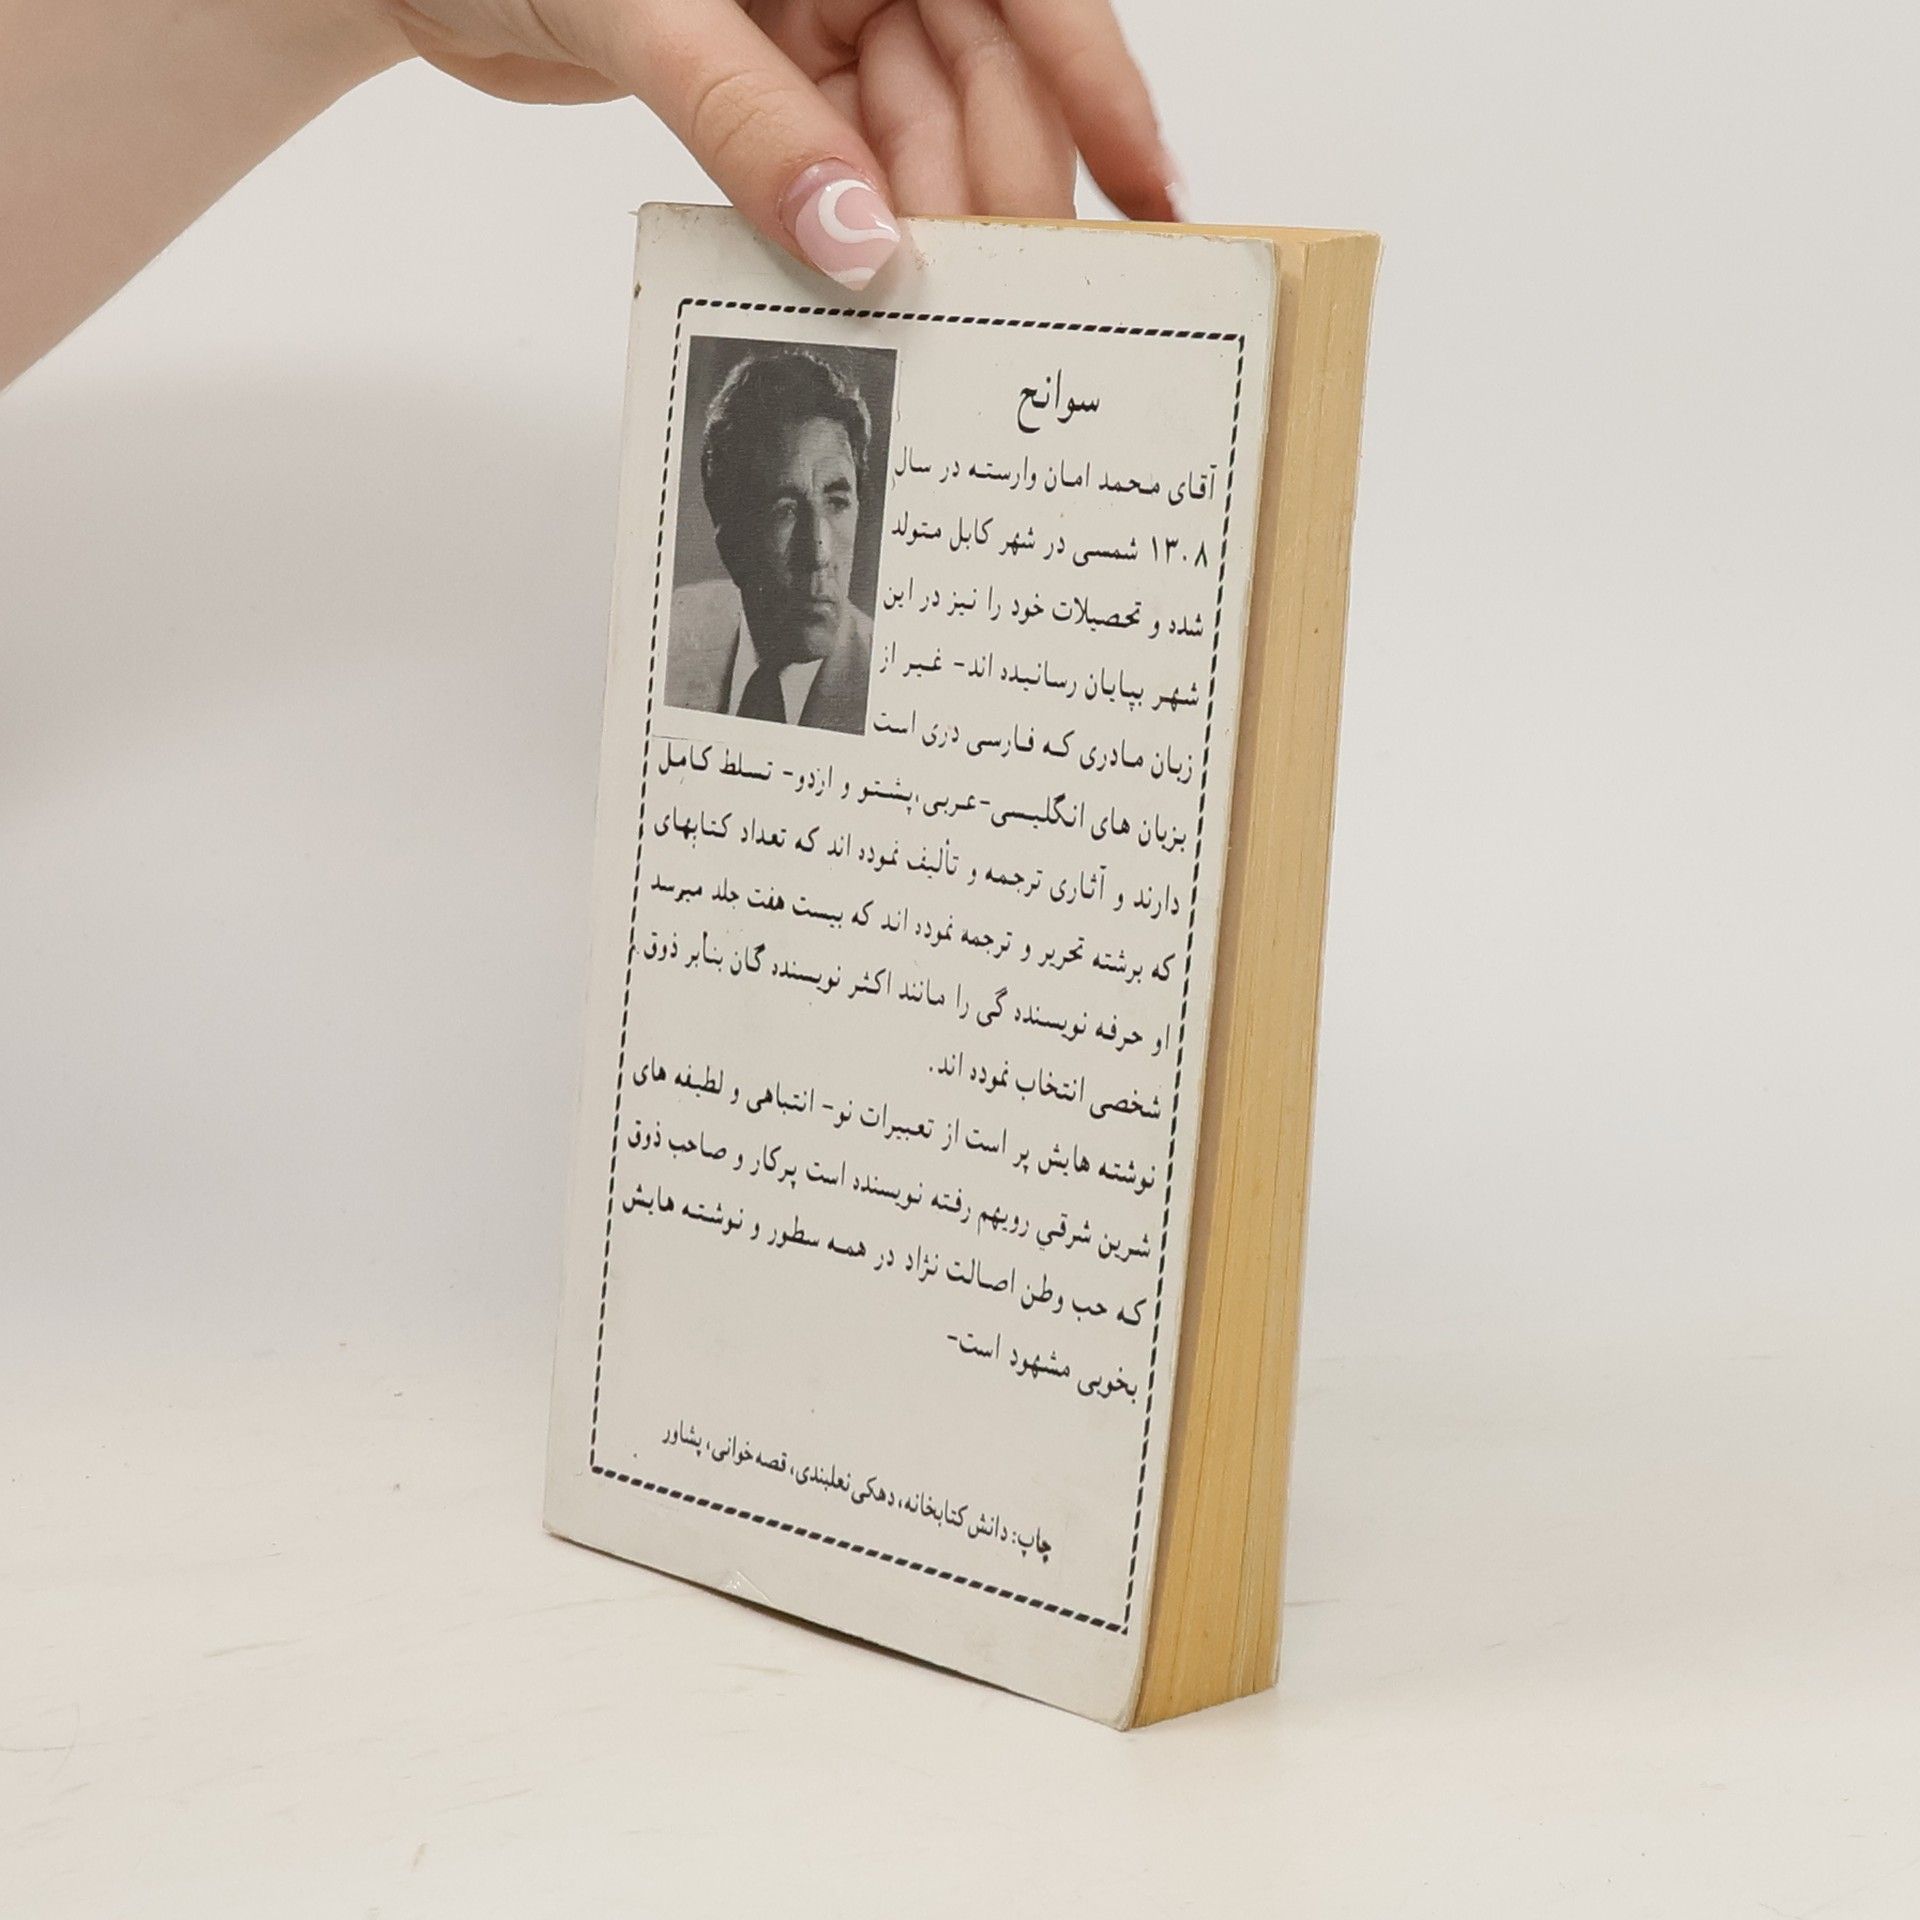 سوانح
آقای محمد امان وارسته در سال
۱۳۰۸ شمسی در شهر کابل متولد
شده و تحصیلات خود را نیز در این
شهر بپایان رسانیده اند- غیر از
زبان مادری که فارسی دری است
بزبان های انگلیسی-عربی،پشتو و اردو- تسلط کامل
دارند و آثاری ترجمه و تألیف نموده اند که تعداد کتابهای
که برشته تحریر و ترجمه نموده اند که بیست هفت جلد میرسد
او حرفه نویسنده گی را مانند اکثر نویسنده گان بنابر ذوق
شخصی انتخاب نموده اند.
نوشته هایش پر است از تعبیرات نو- انتباهی و لطیفه های
شرین شرقی رویهم رفته نویسنده است پرکار و صاحب ذوق
که حب وطن اصالت نژاد در همه سطور و نوشته هایش
بخوبی مشهود است-
چاپ: دانش کتابخانه، دهکی نعلبندی، قصه خوانی، پشاور